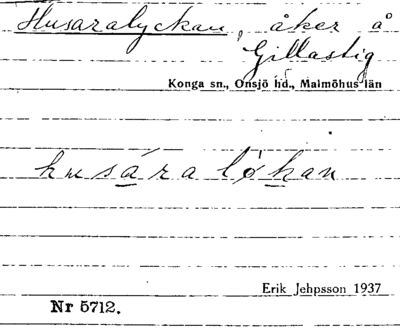 Husaralyckan, åker å
Gillastig
Konga sn., Onsjö hd., Malmöhus län
husára lø̀kan
Erik Jehpsson 1937
Nr 5712.